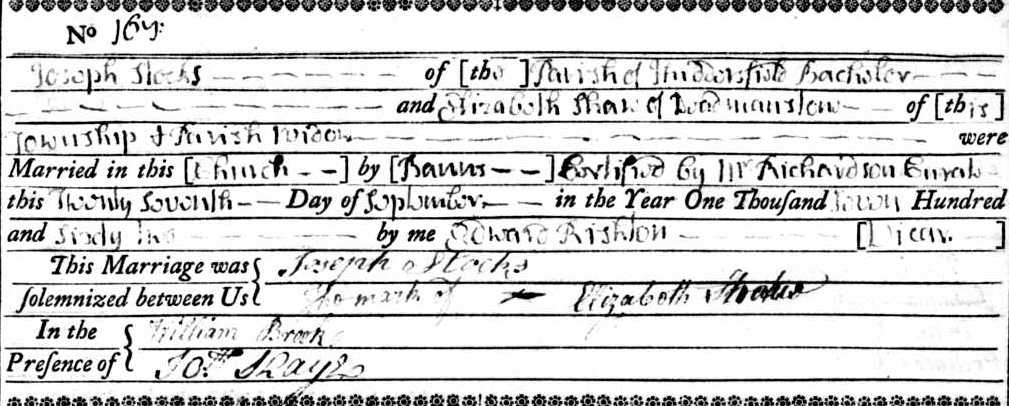 No 167:
Joseph Stocks of [the ] Parish of Huddersfield Bachelor
and Elizabeth Shaw of Deadmanstone of [this ]
Township & Parish Widow were
Married in this [Church ] by [Banns ] Certified by Mr Richardson Curate
this Twenty Seventh Day of September in the Year One Thouſand Seven Hundred
and Sixty two by me Edward Rishton [Vicar. ]
This Marriage was { Joseph Stocks
ſolemnized between Us { The mark of + Elizabeth
In the { William Brook
Preſence of { Jos.